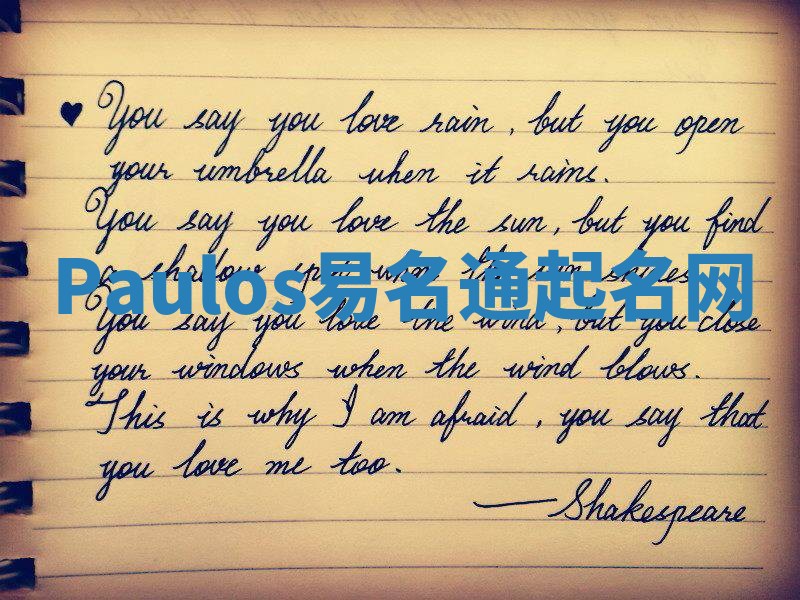 ♥ You say you love rain, but you open
your umbrella when it rains.
You say you love the sun, but you find
a shadow spot when the sun shines.
Paulos易名通起名网
You say you love the wind, but you close
your windows when the wind blows.
This is why I am afraid, you say that
you love me too.
—Shakespeare